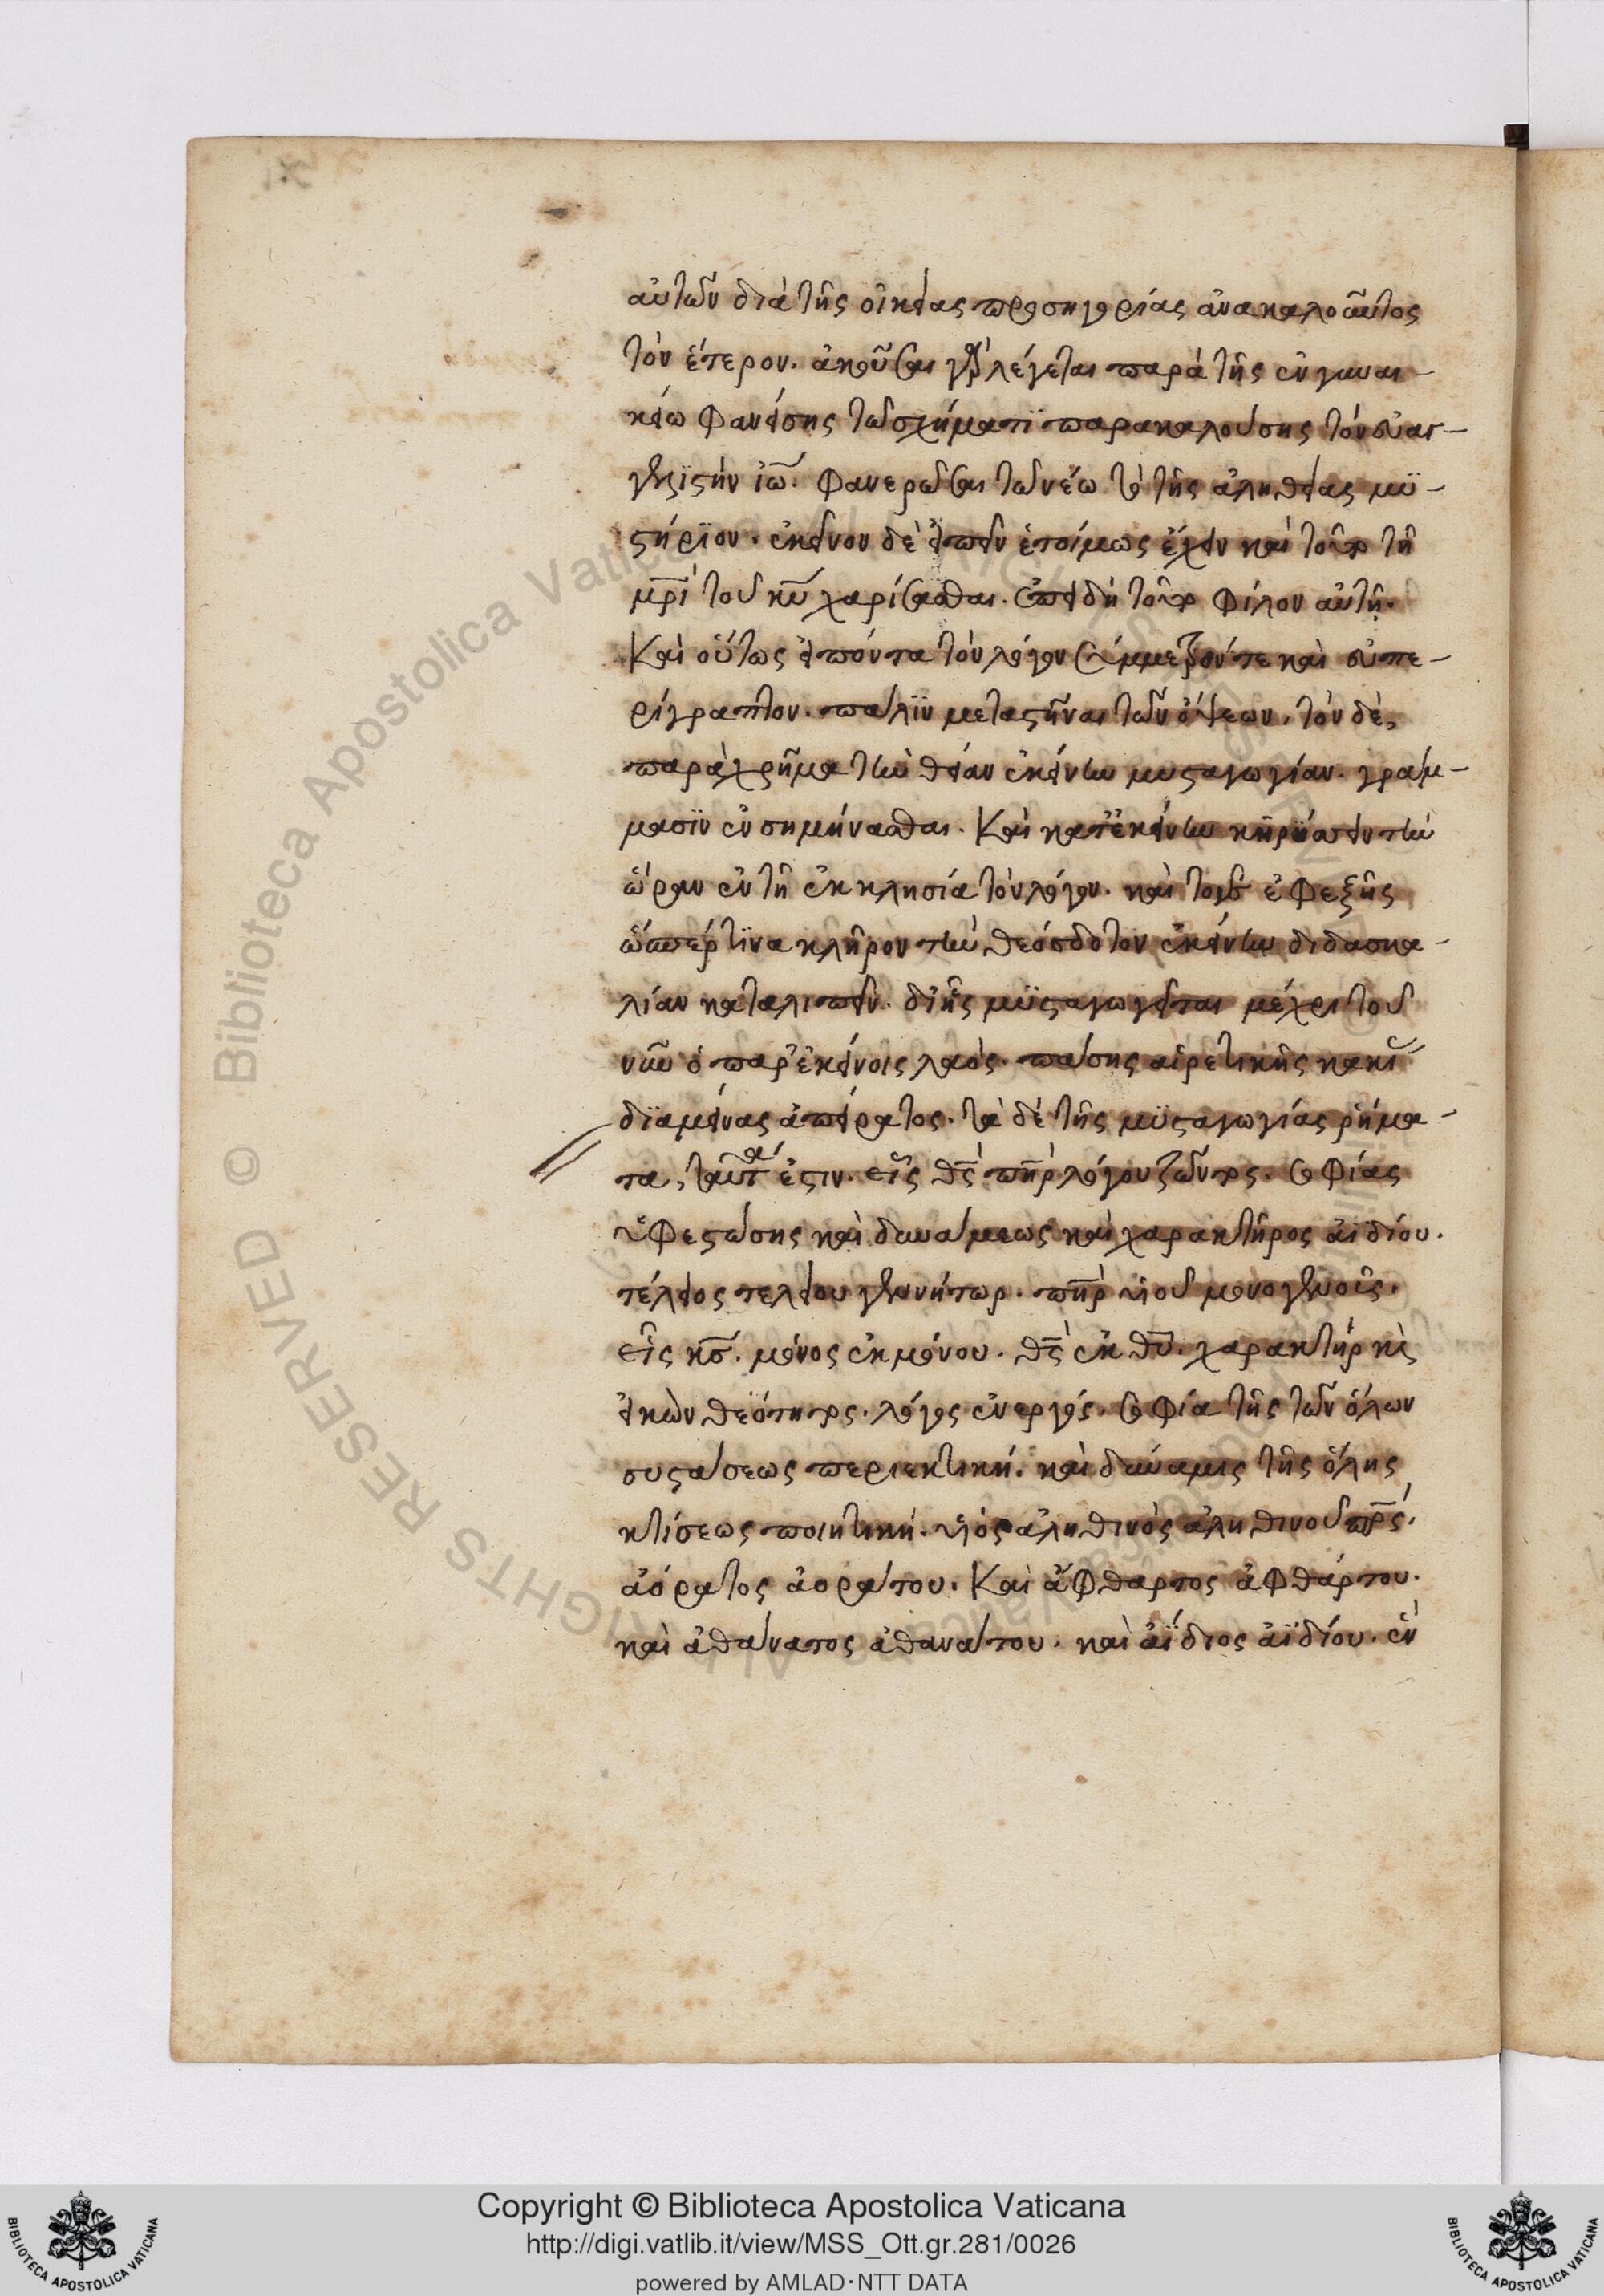 αὐτῶν διὰ τῆς οἰκείας προσηγορίας ἀνακαλοῦντος
τὸν ἕτερον. ἀκοῦσαι γὰρ λέγεται παρὰ τῆς ἐν γυναι-
κείω φανείσης τῶ σχήματϊ παρακαλούσης τὸν εὐαγ-
γελϊστὴν ἰω̅. φανερῶσαι τῶ νέω τὸ τῆς ἀληθείας μϋ-
στήρϊον. ἐκεῖνον δὲ εἰπεῖν ἑτοίμως ἔχειν καὶ τοῦτο τῆ
μρ̅ὶ τοῦ κυ̅ χαρίσασθαι. ἐπειδὴ τοῦτο φίλον αὐτῆ.
Καὶ οὕτως εἰπόντα τὸν λόγον σύμμετρόν τε καὶ εὐπε-
ρίγραπτον. πάλϊν μεταστῆναι τῶν ὄψεων. τὸν δὲ
παράχρῆμα τὴν θείαν ἐκείνην μυσταγωγίαν. γράμ-
μασϊν ἐνσημήνασθαι. Καὶ κατἐκείνην κηρύττειν τὴν
ὥραν ἐν τῆ ἐκκλησία τὸν λόγον. καὶ τοῖς ἐφεξῆς
ὥσπέρ τϊνα κλῆρον τὴν θεόσδοτον ἐκείνην διδασκα-
λίαν καταλιπεῖν. δἰ ἧς μϋσταγωγεῖται μέχρι τοῦ
νῦν ὁ παρ' ἐκείνοις λαὸς. πάσης αἱρετικῆς κακί
δϊαμείνας ἀπείρατος. τὰ δὲ τῆς μϋσταγωγίας ῥήμα-
τα, ταῦτά ἐστιν. εἷς θς̅ πηρ̅ λόγου ζῶντος. σοφίας
ὑφεστώσης καὶ δυνάμεως καὶ χαρακτῆρος ἀϊδίου.
τέλειος τελείου γεννήτωρ. πηρ̅ υἱοῦ μονογενοῦς.
εἷς κς̅. μόνος ἐκ μόνου. θς̅ ἐκ θυ̅. χαρακτὴρ κὶ
εἰκὼν θεότητος. λόγος ἐνεργός. σοφία τῆς τῶν ὅλων
συστάσεως περιεκτική. καὶ δύναμις τῆς ὅλης
κτίσεως ποιητική. υἱὸς ἀληθινὸς ἀληθινοῦ πρς̅.
ἀόρατος ἀοράτου. Καὶ ἄφθαρτος ἀφθάρτου.
καὶ ἀθάνατος ἀθανάτου. καὶ ἀΐδιος ἀϊδίου. ἓν
Copyright © Biblioteca Apostolica Vaticana
http://digi.vatlib.it/view/MSS_Ott.gr.281/0026
powered by AMLAD·NTT DATA